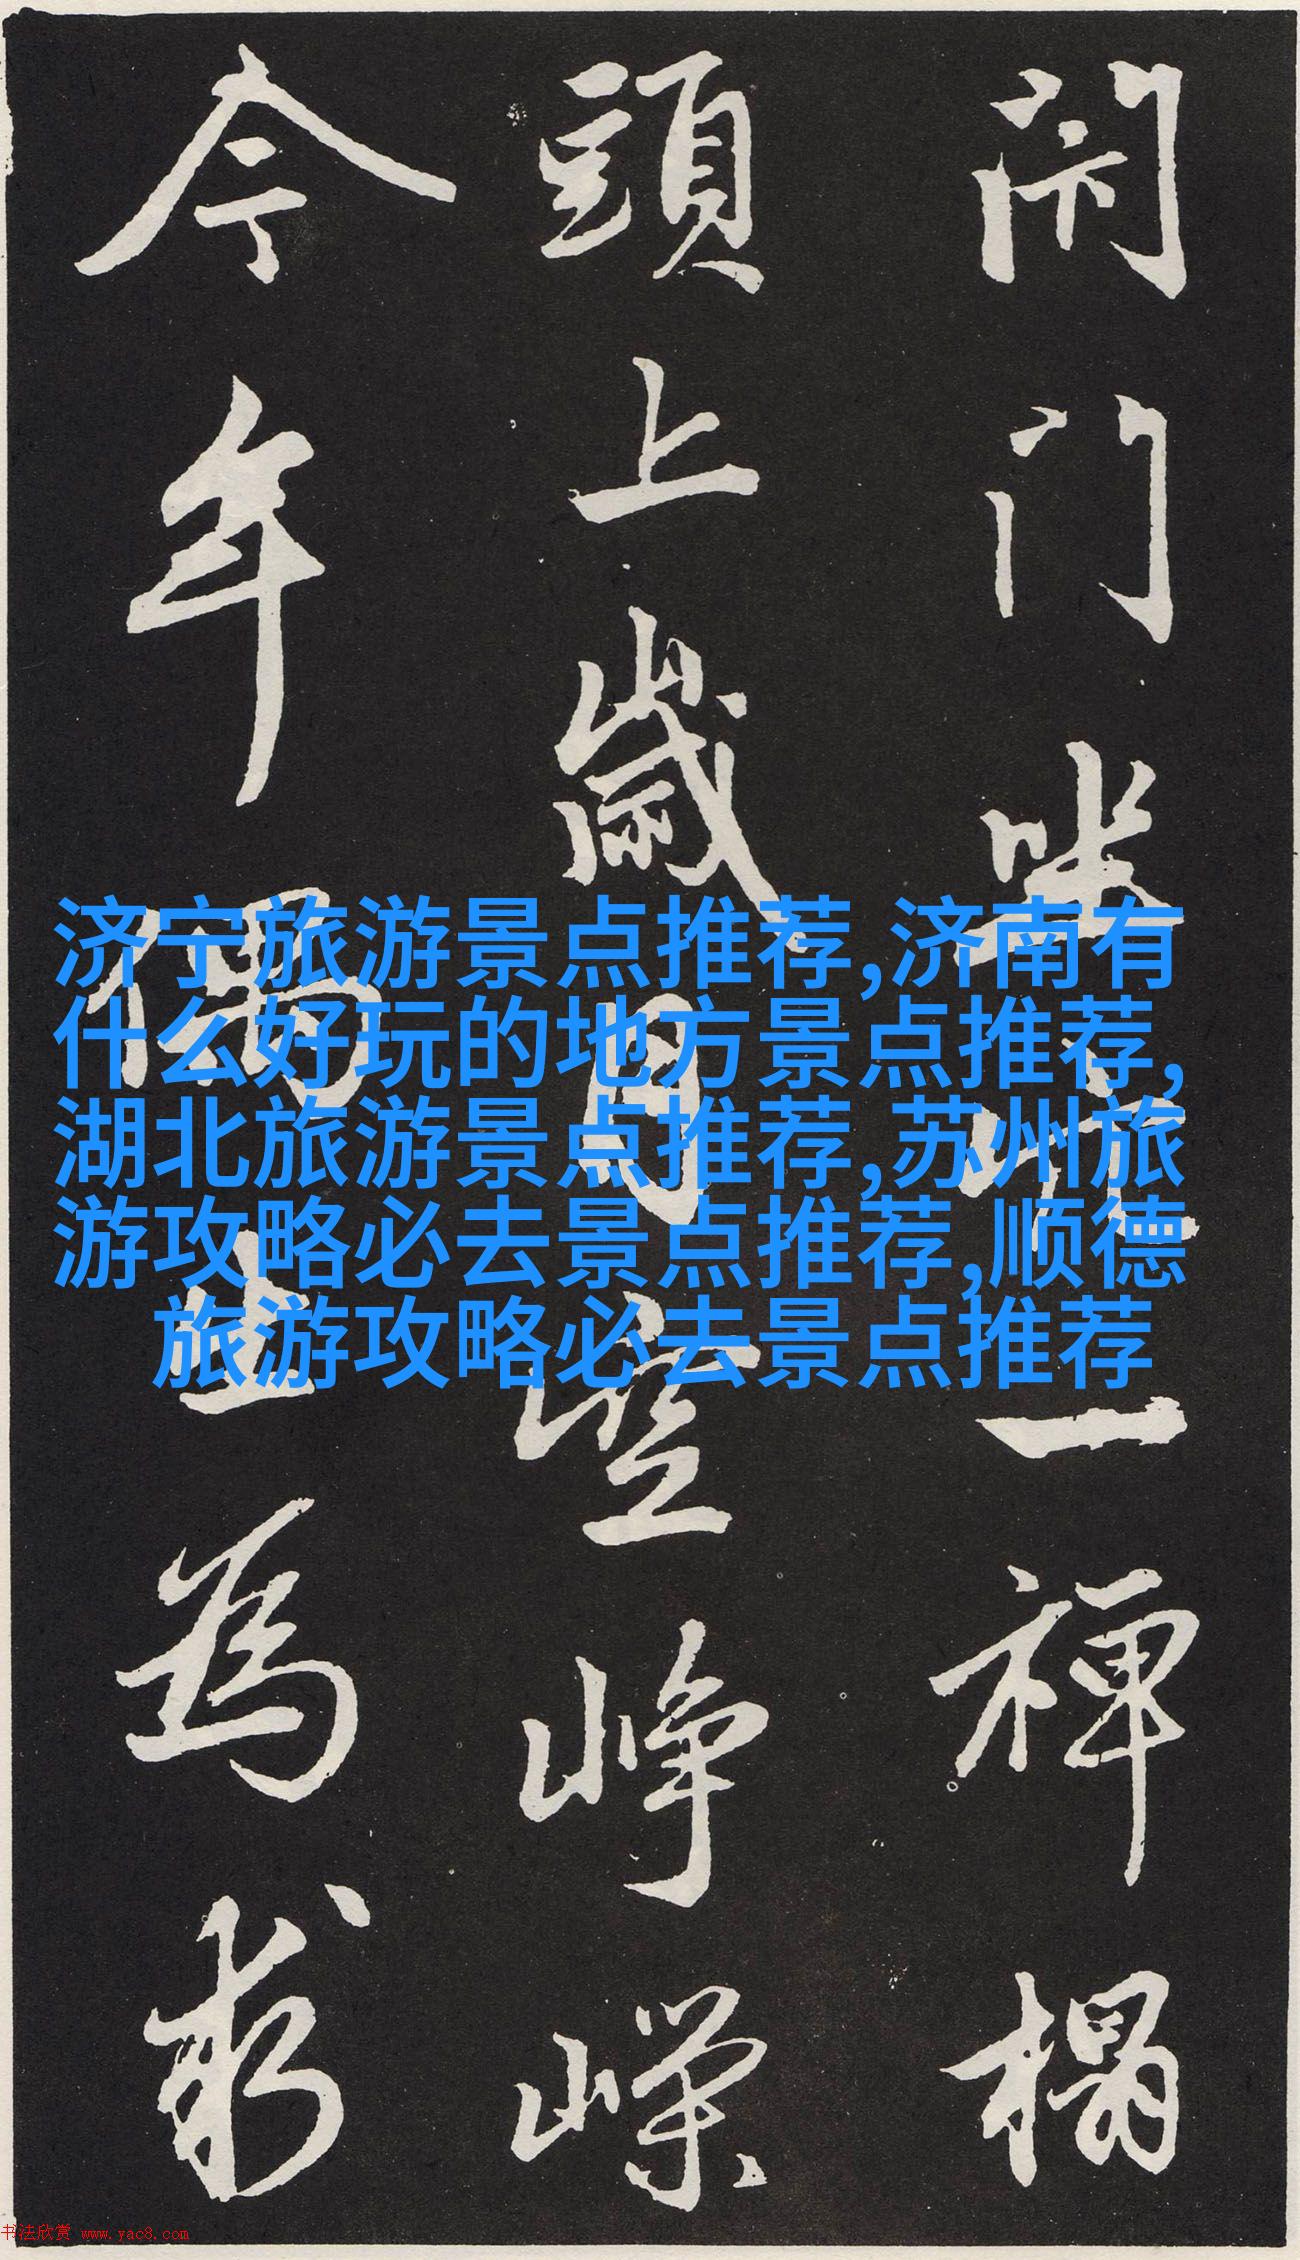 閇門坐穴一禪榻
頭上歲月空崢嶸
今年偶出為求
济宁旅游景点推荐,济南有
什么好玩的地方景点推荐,
湖北旅游景点推荐,苏州旅
游攻略必去景点推荐,顺德
旅游攻略必去景点推荐
书法欣赏 www.yac8.com